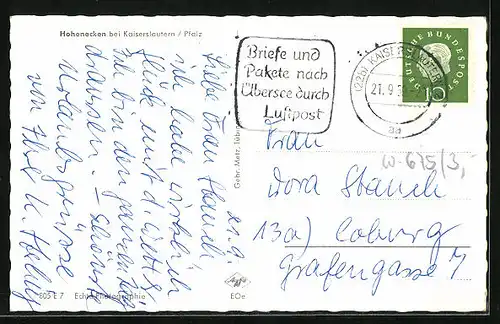 Hohenecken bei Kaiserslautern / Pfalz
Briefe und
Pakete nach
Übersee durch
Luftpost
(22b) KAISERSLAUTERN
21.9.
aa
DEUTSCHE BUNDESPOST
10
W-675/3,-
21.9.
Liebe Frau Stauch
ich habe wirklich
Glück mit d. Wetter
Ich bin den ganzen Tag
draussen. – schönste
Urlaubsgrüsse
von Ihrer
Frau
Dora Stauch
13a) Coburg
Grafengasse 7
Gebr. Metz, Tübingen
Agfa
805 E 7 Echte Photographie
EOe